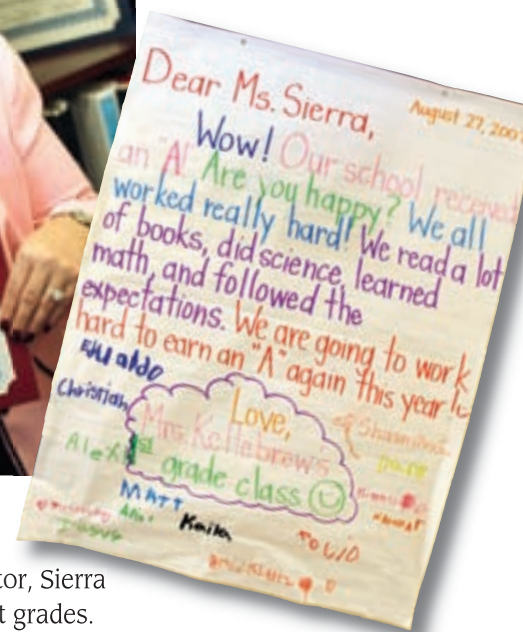 Dear Ms. Sierra,
August 27, 200
Wow! Our school received
an "A!" Are you happy? We all
worked really hard! We read a lot
of books, did science, learned
math, and followed the
expectations. We are going to work
hard to earn an "A" again this year!
Christian
Love,
Mrs. Kellebrew's
Alex
1st grade class
MATT
tor, Sierra
t grades.